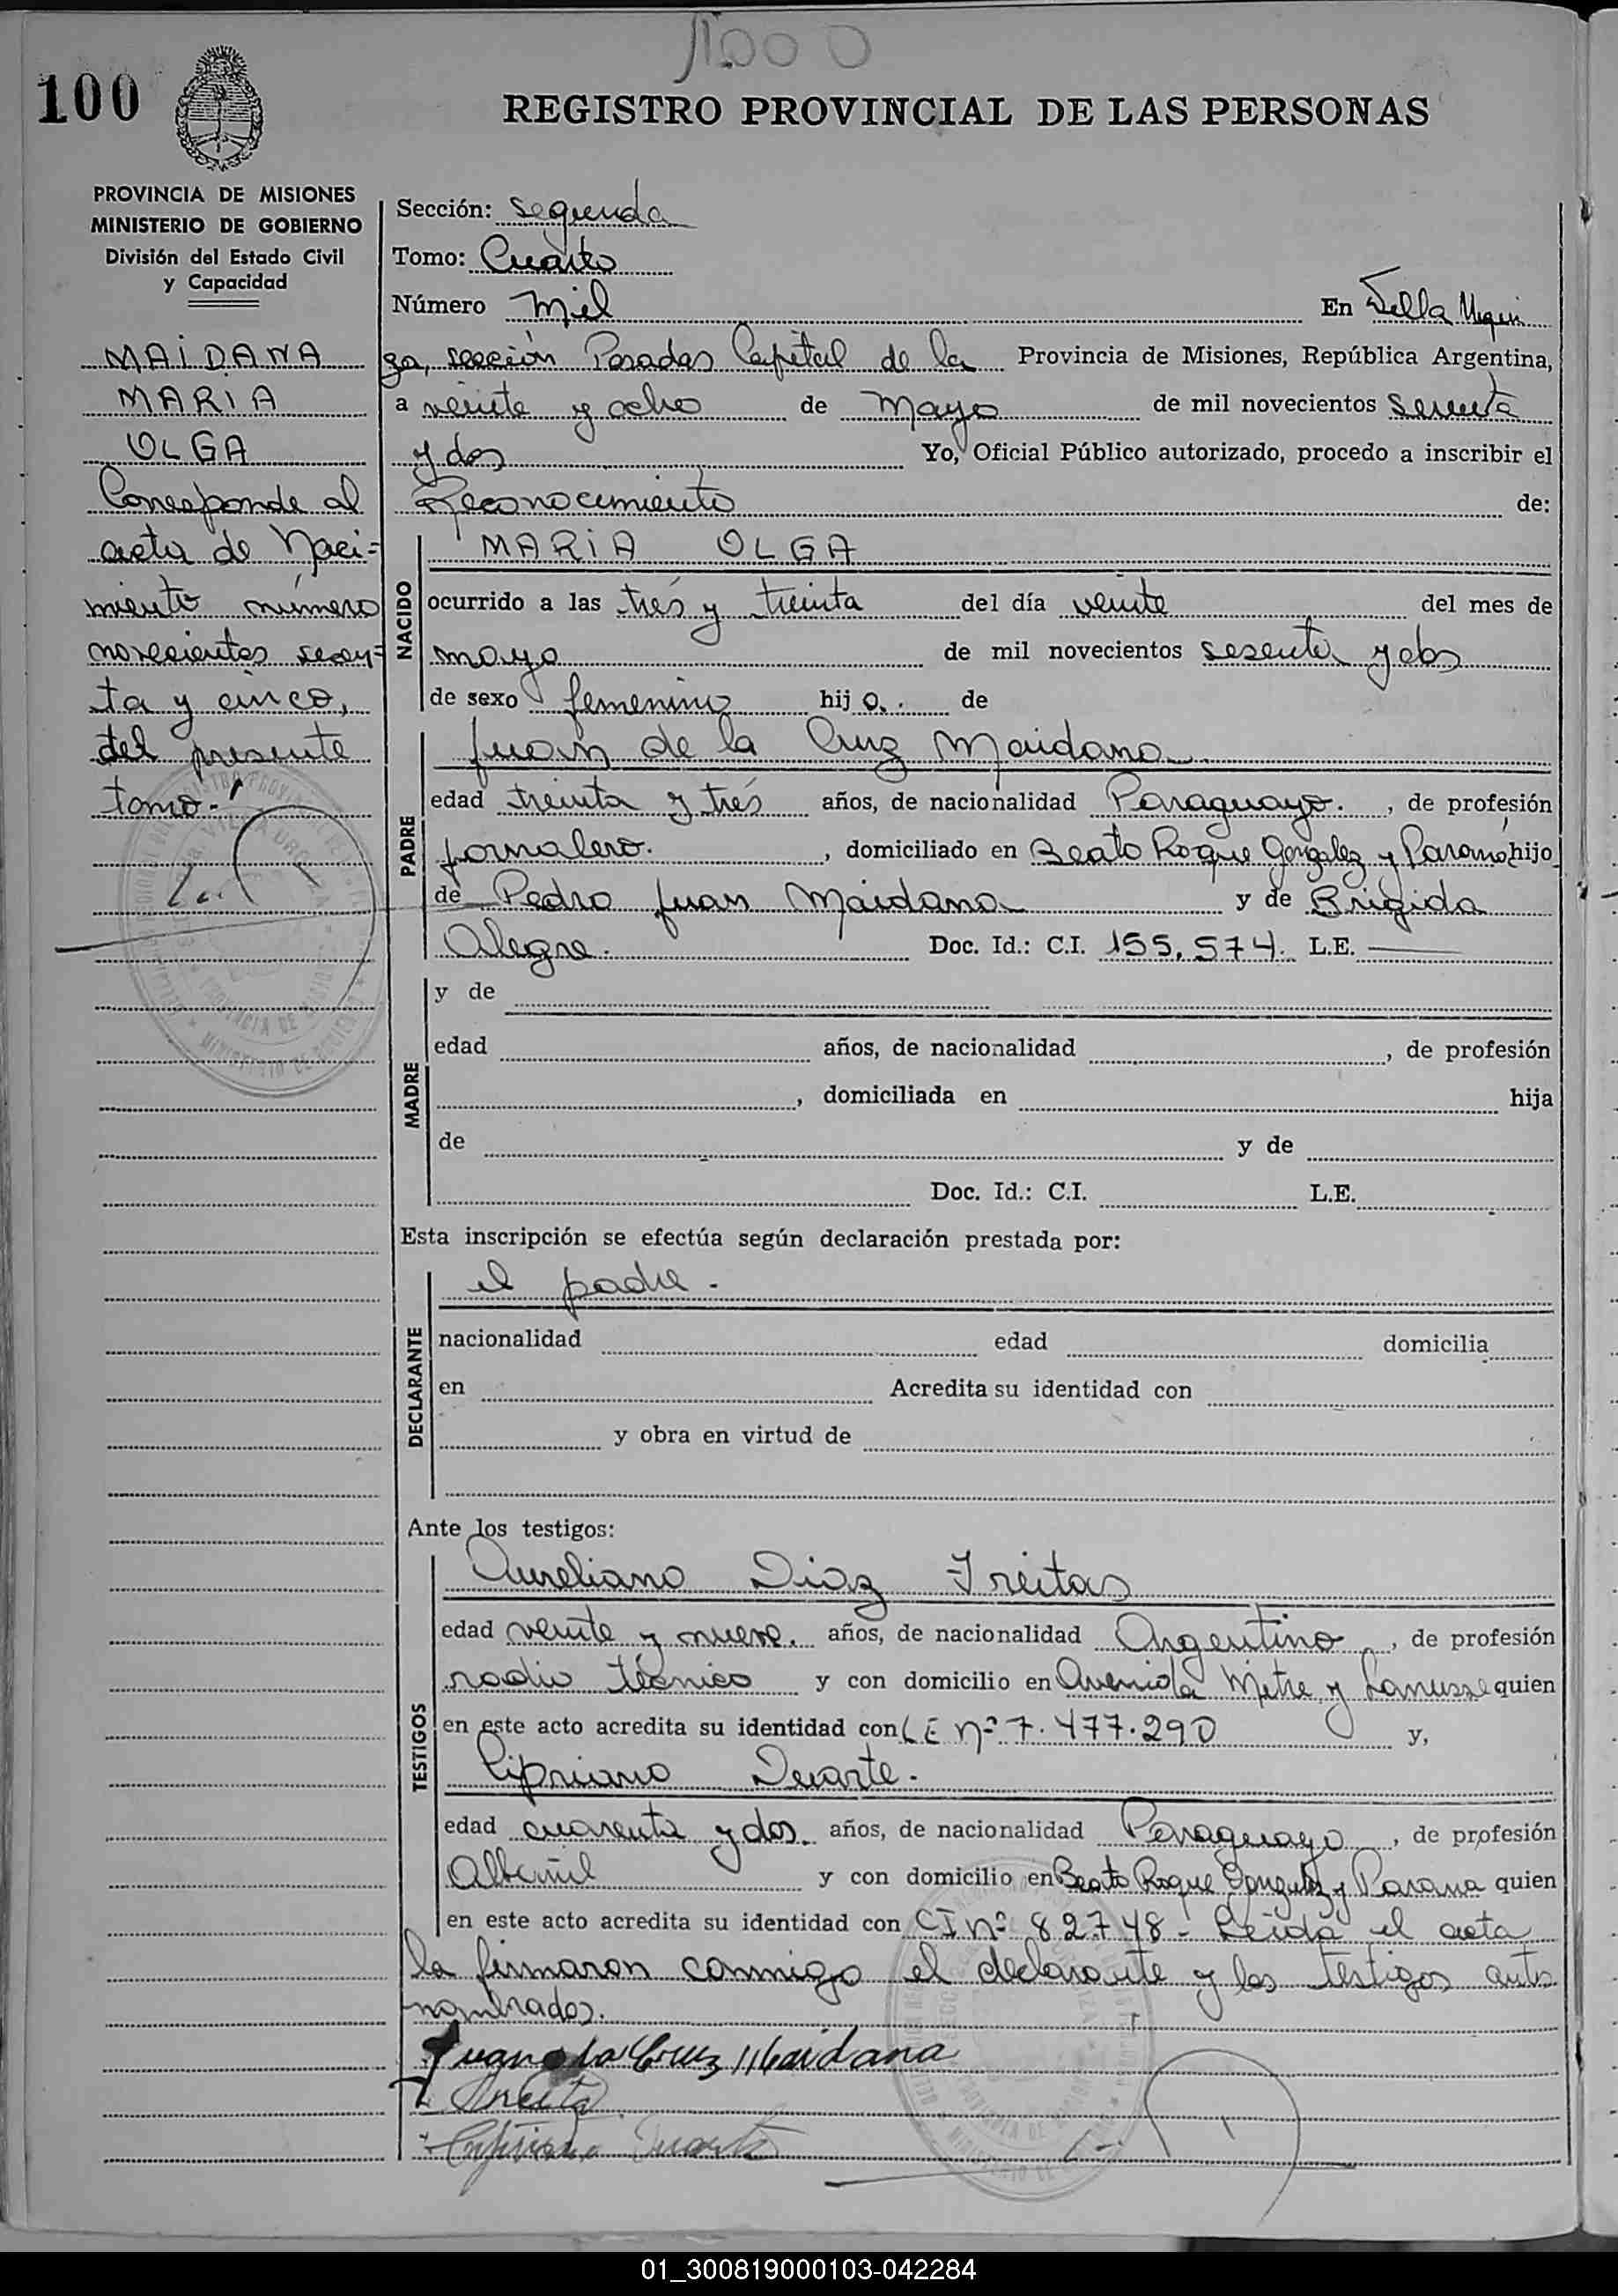 1000
100
REGISTRO PROVINCIAL DE LAS PERSONAS
PROVINCIA DE MISIONES
MINISTERIO DE GOBIERNO
División del Estado Civil
y Capacidad
MAIDANA
MARIA
OLGA
Corresponde al
acta de Naci=
miento número
novecientos sesen=
ta y cinco,
del presente
tomo.-
Sección: Segunda
Tomo: Cuarto
Número Mil En Villa Urqui
za, sección Posadas Capital de la Provincia de Misiones, República Argentina,
a veinte y ocho de Mayo de mil novecientos sesenta
y dos Yo, Oficial Público autorizado, procedo a inscribir el
Reconocimiento de:
NACIDO
MARIA OLGA
ocurrido a las tres y treinta del día veinte del mes de
mayo de mil novecientos sesenta y dos
de sexo femenino hija. de
PADRE
Juan de la Cruz Maidana
edad treinta y tres años, de nacionalidad Paraguayo. , de profesión
jornalero. , domiciliado en Beato Roque Gonzalez y Paraná hijo
de Pedro Juan Maidana y de Brigida
Alegre. Doc. Id.: C.I. 155.574. L.E.
MADRE
y de
edad años, de nacionalidad , de profesión
, domiciliada en hija
de y de
Doc. Id.: C.I. L.E.
Esta inscripción se efectúa según declaración prestada por:
DECLARANTE
el padre.
nacionalidad edad domicilia
en Acredita su identidad con
y obra en virtud de
Ante los testigos:
TESTIGOS
Aureliano Diaz Freitas
edad veinte y nueve. años, de nacionalidad Argentino , de profesión
radio técnico y con domicilio en Avenida Mitre y Lanusse quien
en este acto acredita su identidad con LE Nº 7.477.290 y,
Cipriano Duarte.
edad cuarenta y dos. años, de nacionalidad Paraguayo , de profesión
Albañil y con domicilio en Beato Roque Gonzalez y Parana quien
en este acto acredita su identidad con CI Nº 82748 - Leida el acta
la firmaron conmigo el declarante y los testigos ante
nombrados.
Juan de la Cruz Maidana
Freitas
Cipriano Duarte
01_300819000103-042284